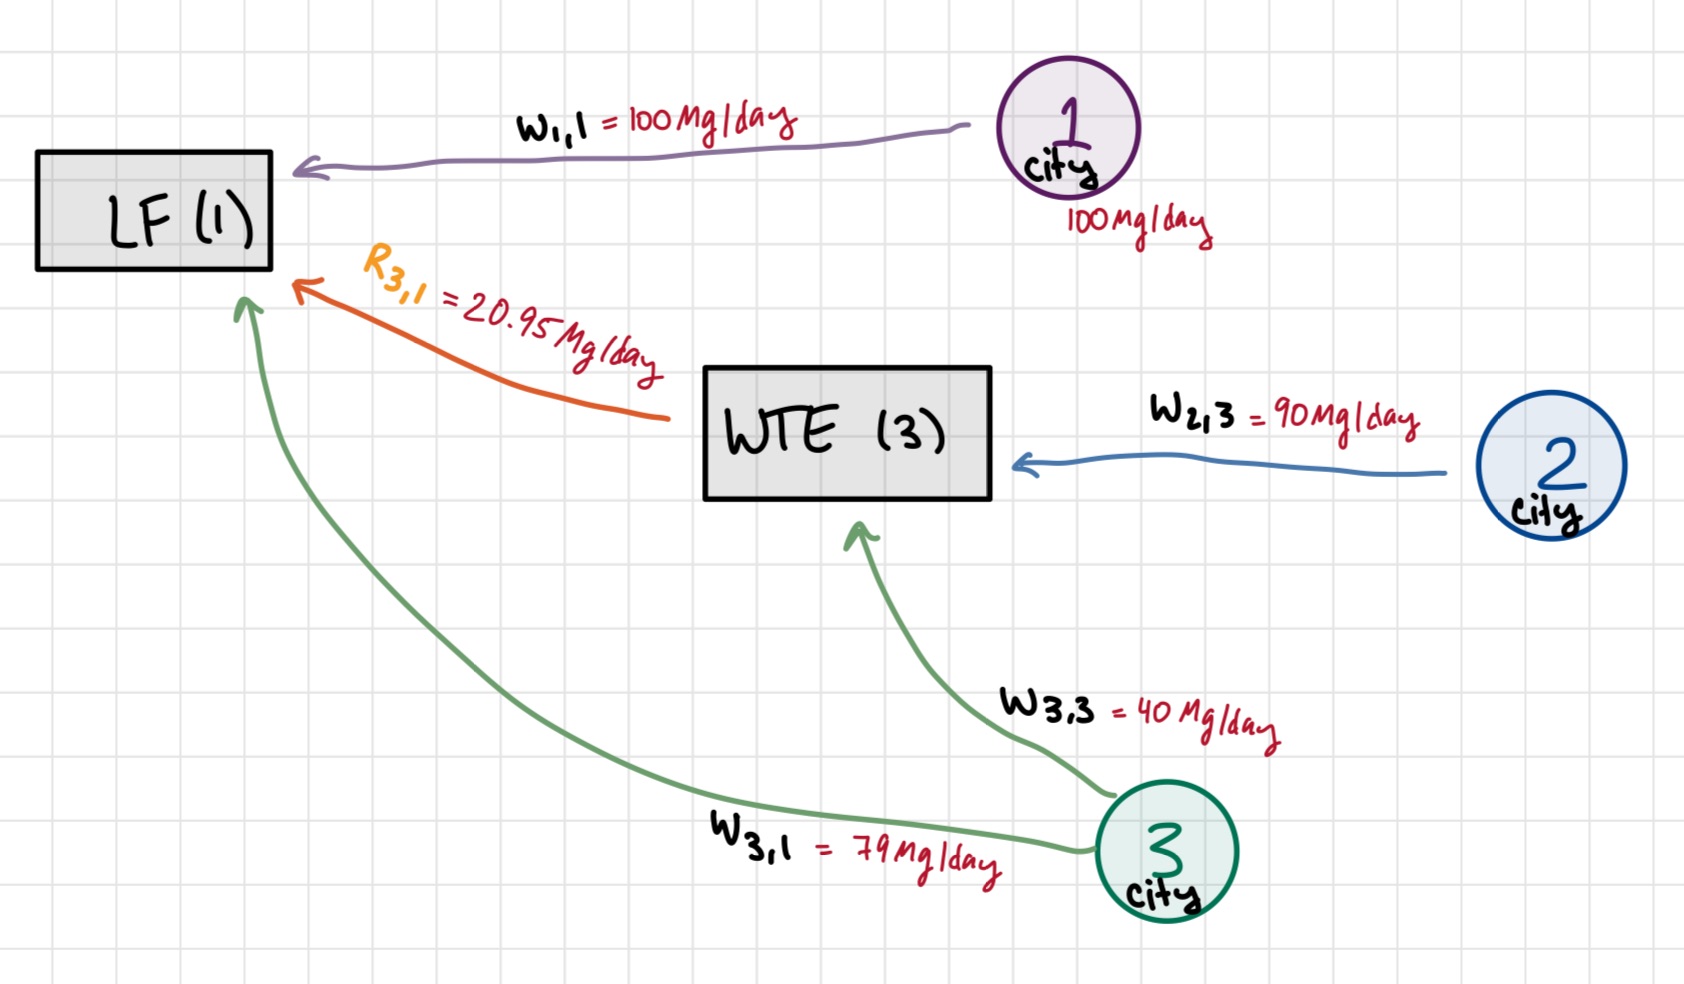 W1,1 = 100 Mg/day
1
city
100 Mg/day
LF (1)
R3,1 = 20.95 Mg/day
WTE (3)
W2,3 = 90 Mg/day
2
city
W3,3 = 40 Mg/day
W3,1 = 79 Mg/day
3
city